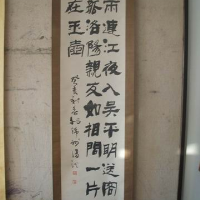 雨連江夜入吴平明送客
孤洛陽親友如相問一片
在玉壺